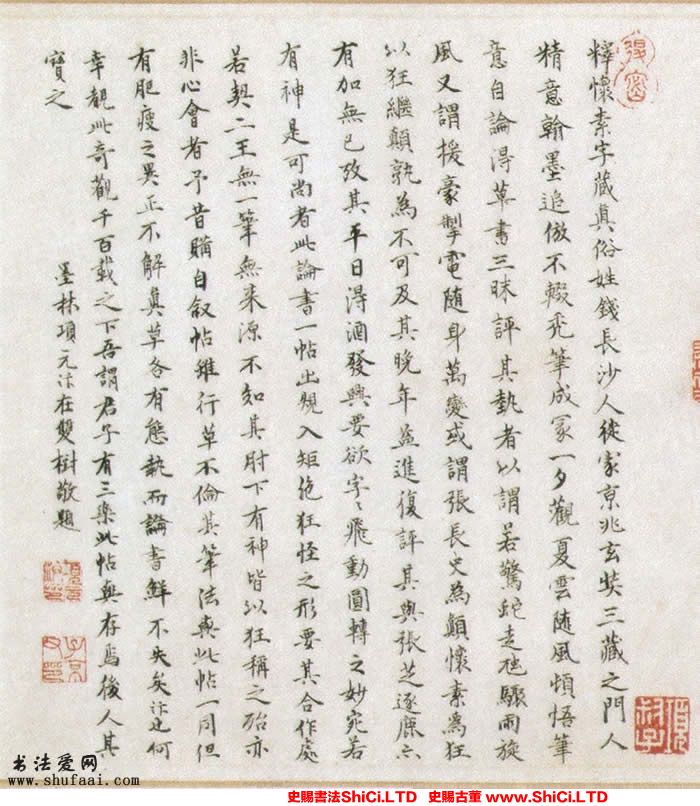 釋懷素字藏真俗姓錢長沙人徙家京兆玄奘三藏之門人
精意翰墨追倣不輟禿筆成冢一夕觀夏雲隨風頓悟筆
意自論得草書三昧評其埶者以謂若驚蛇走虺驟雨旋
風又謂援豪掣電隨身萬變或謂張長史為顛懷素為狂
以狂繼顛孰為不可及其晚年益進復評其與張芝逐鹿亦
有加無已故其平日得酒發興要欲字〻飛動圓轉之妙宛若
有神是可尚者此論書一帖出規入矩絕狂怪之形要其合作處
若契二王無一筆無来源不知其肘下有神皆以狂稱之殆亦
非心會者予昔購自敘帖雖行草不倫其筆法與此帖一同但
有肥瘦之異正不解真草各有態埶而論書鮮不失矣汴也何
幸覩此奇觀千百載之下吾謂君子有三樂此帖與存焉後人其
寶之
墨林項元汴在雙樹敬題
书法爱网
www.shufaai.com
史賜書法ShiCi.LTD 史賜古董 www.ShiCi.LTD